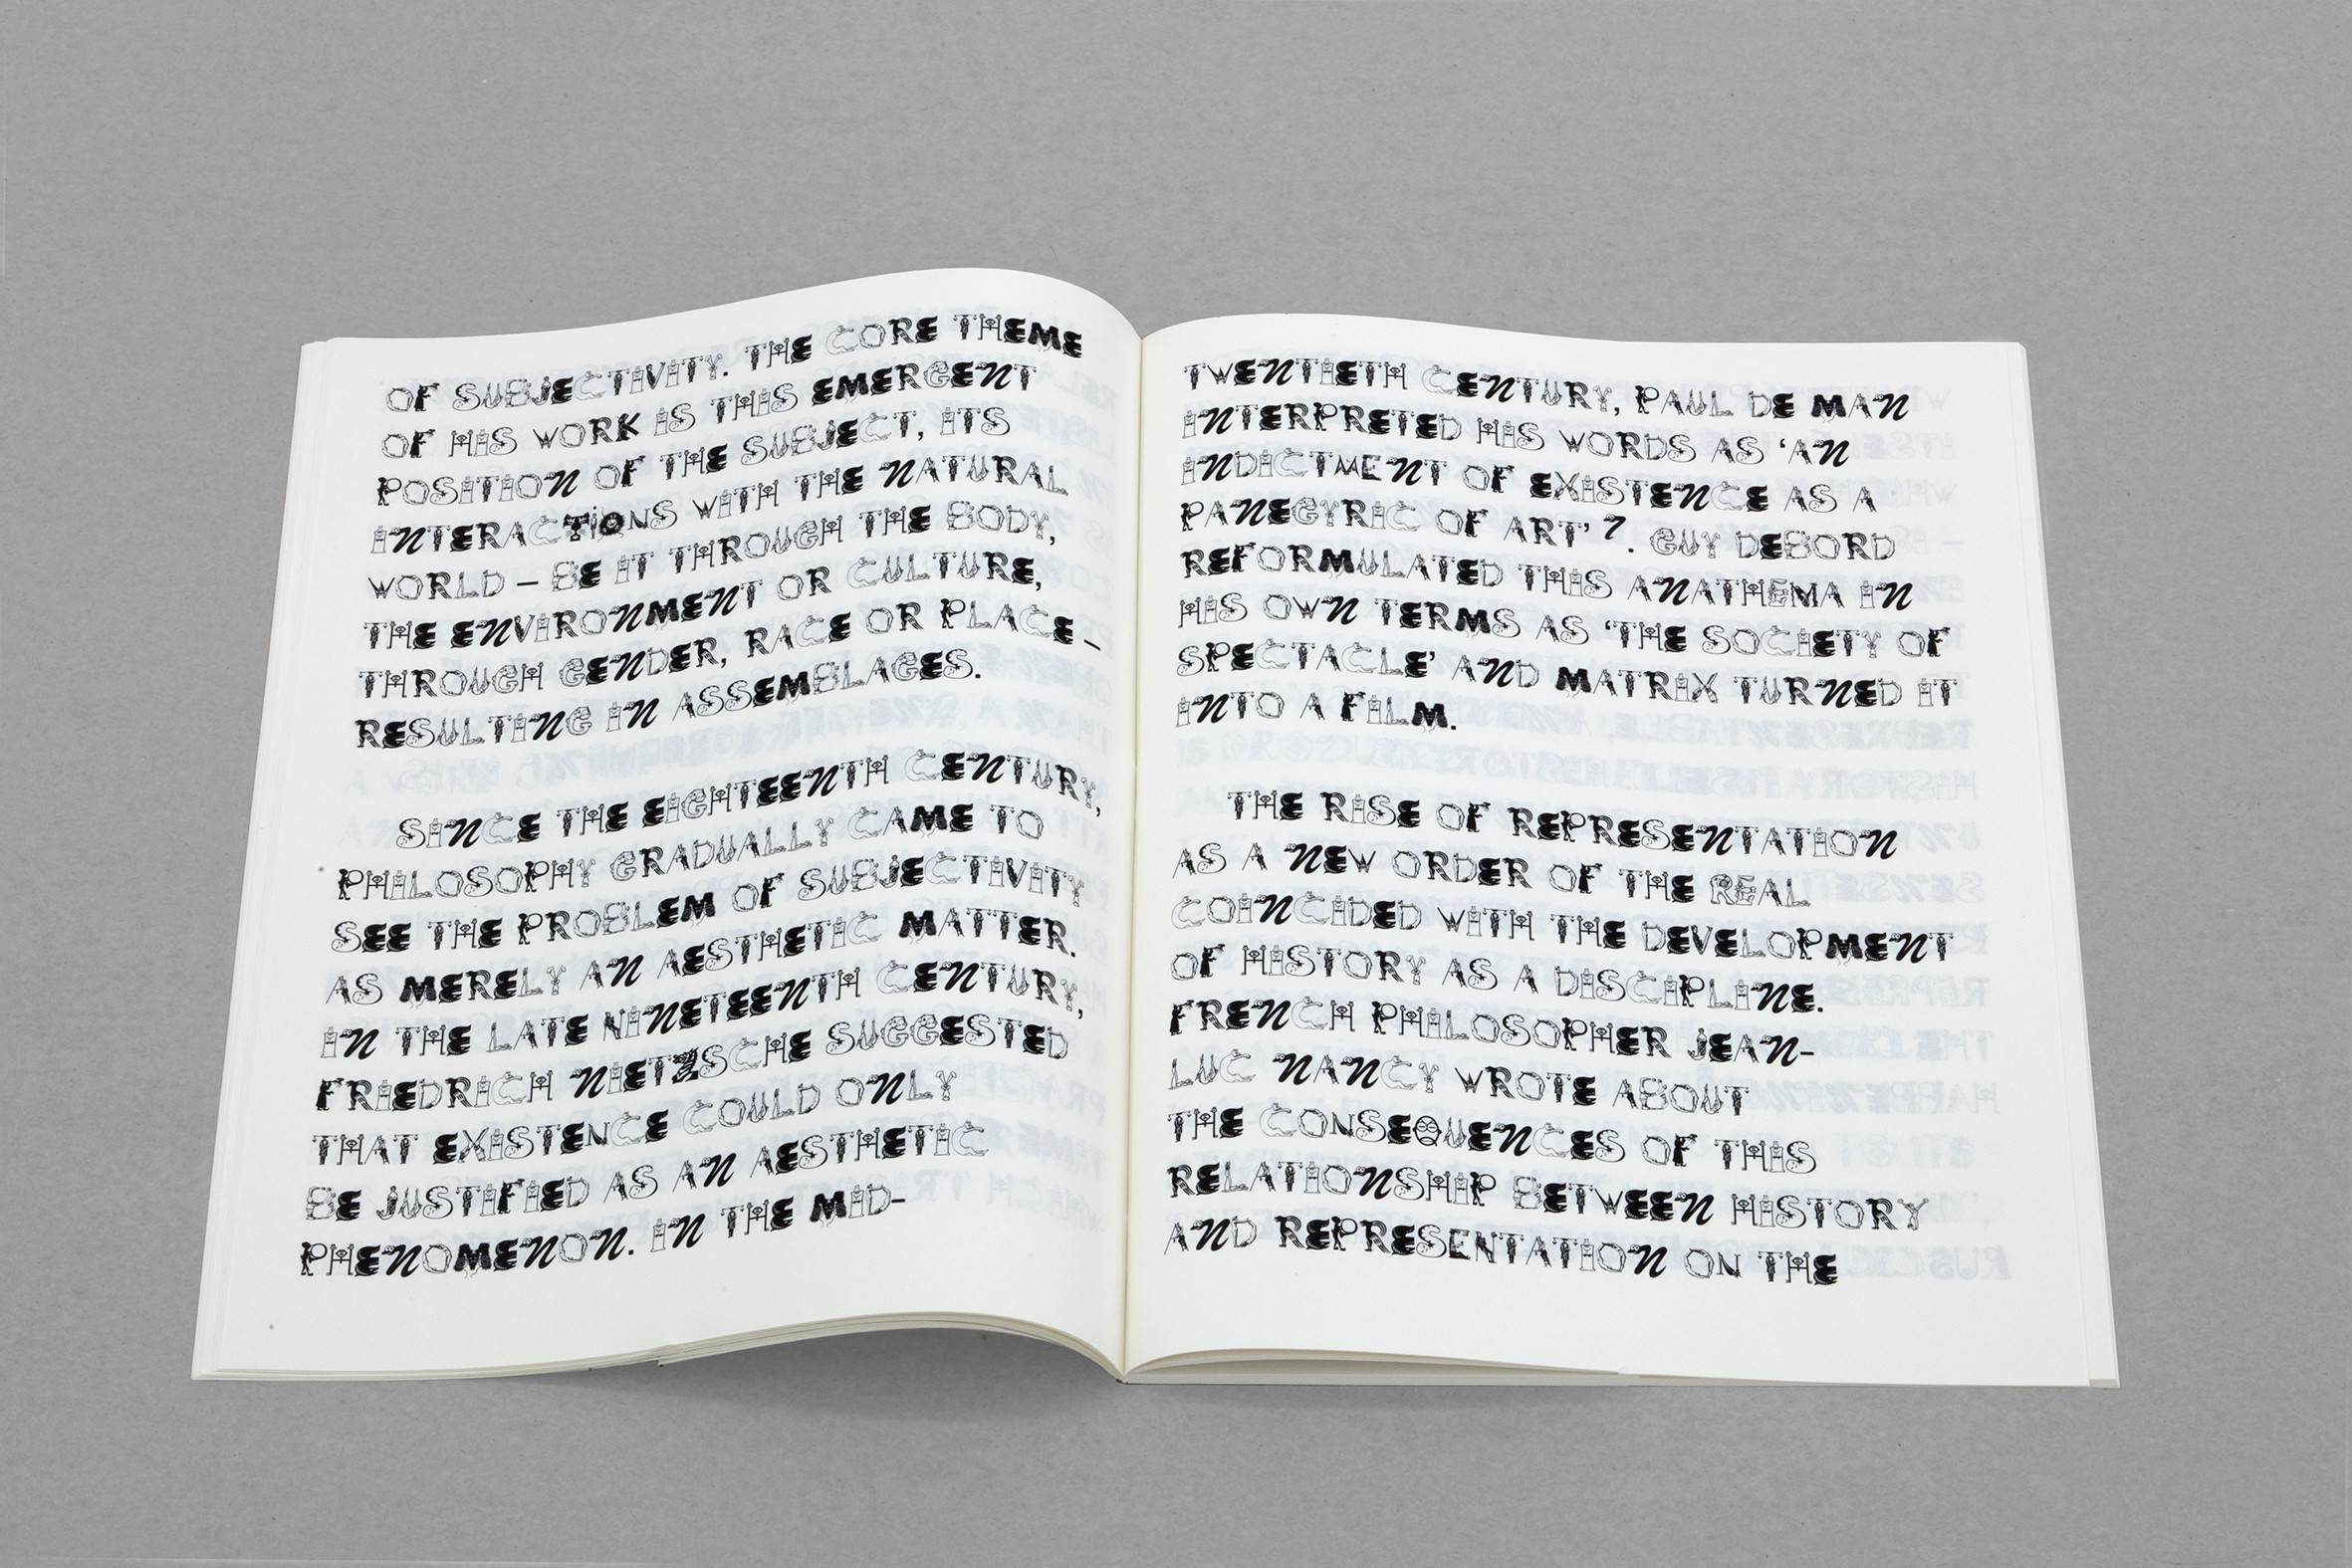 OF SUBJECTIVITY. THE CORE THEME
OF HIS WORK IS THIS EMERGENT
POSITION OF THE SUBJECT, ITS
INTERACTIONS WITH THE NATURAL
WORLD – BE IT THROUGH THE BODY,
THE ENVIRONMENT OR CULTURE,
THROUGH GENDER, RACE OR PLACE –
RESULTING IN ASSEMBLAGES.
SINCE THE EIGHTEENTH CENTURY,
PHILOSOPHY GRADUALLY CAME TO
SEE THE PROBLEM OF SUBJECTIVITY
AS MERELY AN AESTHETIC MATTER.
IN THE LATE NINETEENTH CENTURY,
FRIEDRICH NIETZSCHE SUGGESTED
THAT EXISTENCE COULD ONLY
BE JUSTIFIED AS AN AESTHETIC
PHENOMENON. IN THE MID-
TWENTIETH CENTURY, PAUL DE MAN
INTERPRETED HIS WORDS AS ‘AN
INDICTMENT OF EXISTENCE AS A
PANEGYRIC OF ART’ 7. GUY DEBORD
REFORMULATED THIS ANATHEMA IN
HIS OWN TERMS AS ‘THE SOCIETY OF
SPECTACLE’ AND MATRIX TURNED IT
INTO A FILM.
THE RISE OF REPRESENTATION
AS A NEW ORDER OF THE REAL
COINCIDED WITH THE DEVELOPMENT
OF HISTORY AS A DISCIPLINE.
FRENCH PHILOSOPHER JEAN-
LUC NANCY WROTE ABOUT
THE CONSEQUENCES OF THIS
RELATIONSHIP BETWEEN HISTORY
AND REPRESENTATION ON THE